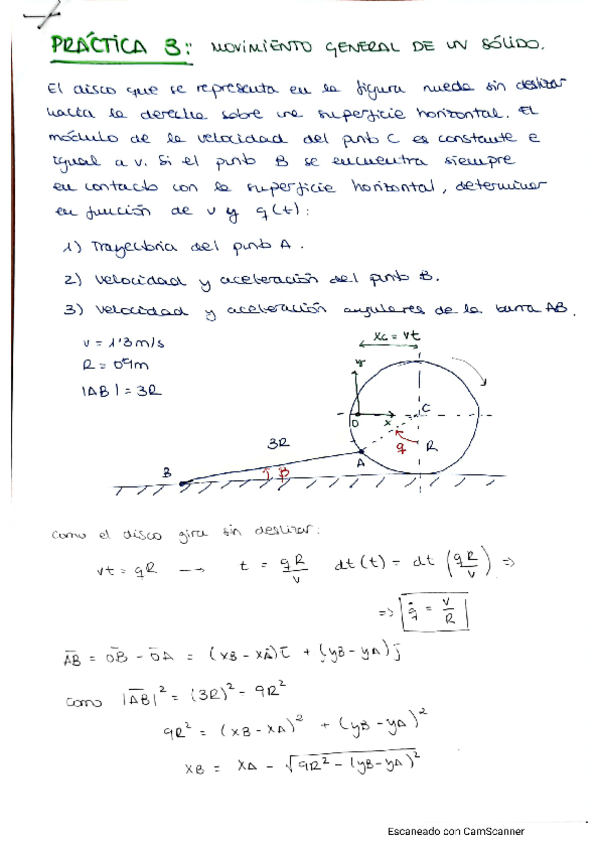 PRÁCTICA 3: MOVIMIENTO GENERAL DE UN SÓLIDO.
El disco que se representa en la figura rueda sin deslizar
hacia la derecha sobre una superficie horizontal. El
módulo de la velocidad del punto C es constante e
igual a v. Si el punto B se encuentra siempre
en contacto con la superficie horizontal, determinar
en función de v y q(t):
1) Trayectoria del punto A.
2) Velocidad y aceleración del punto B.
3) Velocidad y aceleración angulares de la barra AB.
v = 1'3 m/s
R = 0'9m
|AB| = 3R
xc = vt
y
O
x
C
q
R
A
3R
B
β
Como el disco gira sin deslizar:
vt = qR → t = qR/v dt(t) = dt (qR/v) ⇒
⇒ q̇ = v/R
A̅B̅ = O̅B̅ - O̅A̅ = (xB - xA) i̅ + (yB - yA) j̅
como |A̅B̅|² = (3R)² - 9R²
9R² = (xB - xA)² + (yB - yA)²
xB = xA - √(9R² - (yB - yA)²)
Escaneado con CamScanner